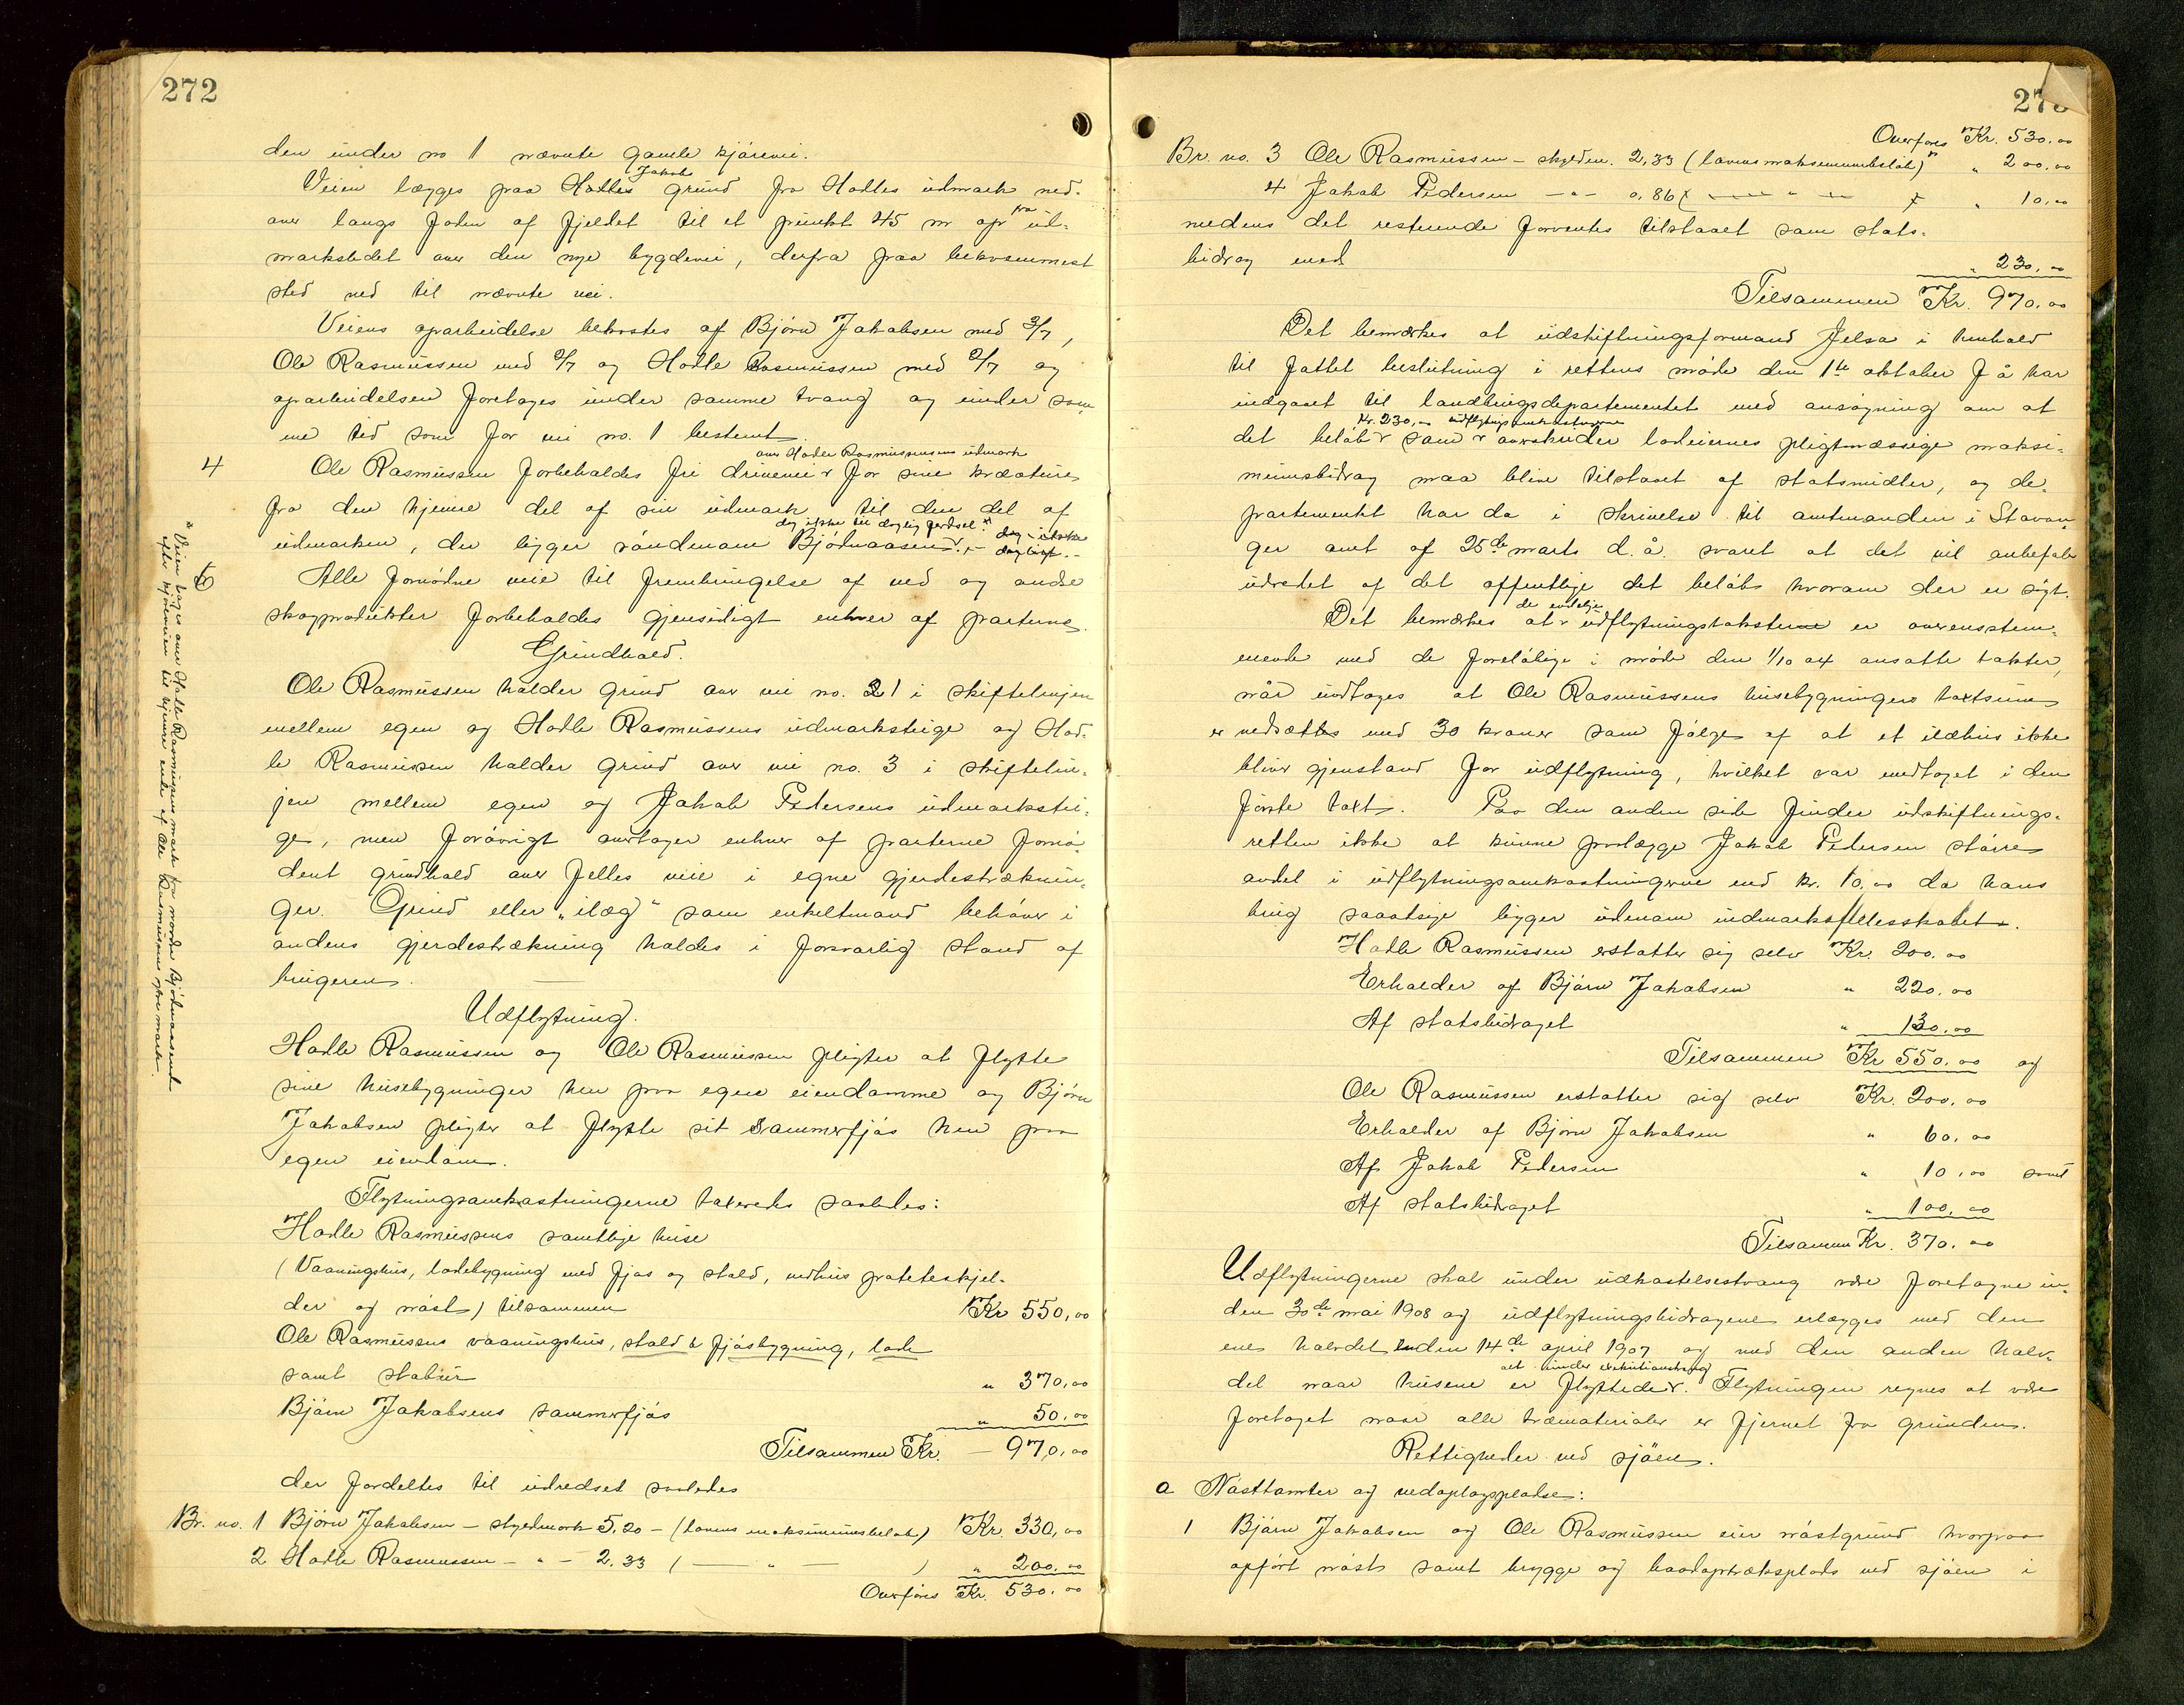 272
den under no 1 nævnte gamle kjørevei.
Veien lægges paa Hadles Jakob grund fra Hadles udmark ned-
over langs foden af fjeldet til et punkt 45 m opr fra ud-
marksledet over den nye bygdevei, derfra paa bekvemmest
sted ned til nævnte vei.
Veiens oparbeidelse bekostes af Bjørn Jakobsen med 3/7,
Ole Rasmussen med 2/7 og Hadle Rasmussen med 2/7 og
oparbeidelsen foretages under samme tvang og under sam-
me tid som for vei no. 1 bestemt.
over Hadle Rasmussens udmark
4 Ole Rasmussen forbeholdes fri drivevei v for sine kreature
fra den hjemre del af sin udmark til den del af
dog ikke til daglig færdsel x
udmarken, der ligger søndenom Bjødnaasen v. - dog ikke daglige. -
5 Alle fornødne veie til frembringelse af ved og andre
skogprodukter forbeholdes gjensidigt enhver af parterne.
Grindhold.
Ole Rasmussen holder grind over vei no. 1 i skiftelinjen
mellem egen og Hadle Rasmussens udmarksteige og Had-
le Rasmussen holder grind over vei no. 3 i skiftelin-
jen mellem egen og Jakob Pedersens udmarkstei-
ge, men forøvrigt overtager enhver af parterne fornø-
dent grindhold over fælles veie i egne gjerdestræknin-
ger. Grind eller "ilæg" som enkeltmand behøver i
andens gjerdestrækning holdes i forsvarlig stand af
brugeren.
Udflytning.
Hadle Rasmussen og Ole Rasmussen pligter at flytte
sine husebygninger hen paa egen eiendomme og Bjørn
Jakobsen pligter at flytte sit sommerfjøs hen paa
egen eiendom.
Flytningsomkostningerne taxeredes saaledes:
Hadle Rasmussens samtlige huse
(Vaaningshus, ladebygning med fjøs og stald, vedhus poteteskjel-
der og nøst) tilsammen Kr 550,00
Ole Rasmussens vaaningshus, stald & fjøsbygning, lade
samt stabur " 370,00
Bjørn Jakobsens sommerfjøs " 50,00
Tilsammen Kr. - 970,00
der fordeltes til udredsel saaledes
Br. no. 1 Bjørn Jakobsen - skyldmark 5,20 - (lovens maksimumsbeløb) Kr. 330,00
2 Hadle Rasmussen - " - 2.33 ( — " — ) " 200.00
Overføres Kr. 530.00
x Veien tages over Hadle Rasmussens mark for norden Bjødnaasen
efter kjøleveien til hjemre ende af Ole Rasmussens øvre mark.
273
Overføres Kr. 530.00
Br. no. 3 Ole Rasmussen - skylden. 2,33 (lovens maksimumsbeløb) " 200,00
4 Jakob Pedersen - " - 0,86 ( — " — ) " 10,00
medens det resterende forventes tilstaaet som stats-
bidrag med " 230,00
Tilsammen Kr. 970,00
Det bemærkes at udskiftningsformand Jelsa i henhold
til fattet beslutning i rettens møde den 1ste oktober f å har
indgaaet til landbrugsdepartementet med ansøgning om at
Kr. 230,00 udflytningsomkostningerne
det beløb v som v overskrider lodeiernes pligtmæssige maksi-
mumsbidrag maa blive tilstaaet af statsmidler, og de-
partementet har da i skrivelse til amtmanden i Stavan-
ger amt af 25de marts d.å. svaret at det vil anbefale
udredet af det offentlige det beløb hvorom der er søgt.
de endelige
Det bemærkes at v udflytningstaksterne er overensstem-
mende med de foreløbige i møde den 1/10 04 ansatte takster,
når undtages at Ole Rasmussens husebygningers taxtsum
er nedsættes med 30 kroner som følge af at et ildhus ikke
bliver gjenstand for udflytning, hvilket var medtaget i den
første taxt. Paa den anden side finder udskiftnings-
retten ikke at kunne paalægge Jakob Pedersen større
andel i udflytningsomkostningerne end kr. 10,00 da hans
brug saaatsige ligger udenom indmarksfællesskabet.
Hadle Rasmussen erstatter sig selv Kr. 200.00
Erholder af Bjørn Jakobsen " 220.00
Af statsbidraget " 130.00
Tilsammen Kr 550.00 og
Ole Rasmussen erstatter sig selv Kr. 200,00
Erholder af Bjørn Jakobsen " 60,00
Af Jakob Pedersen " 10,00 samt
Af statsbidraget " 100,00
Tilsammen Kr. 370.00
Udflytningerne skal under udkastelsestvang være foretagne in-
den 30de mai 1908 og udflytningsbidragene erlægges med den
ene halvdel inden 14de april 1907 og med den anden halv-
alt under exekutionstvang
del naar husene er flyttede v. Flytningen regnes at være
foretaget naar alle træmaterialer er fjernet fra grunden.
Rettigheder ved sjøen.
a Nøsttomter og vedoplagspladse:
1 Bjørn Jakobsen og Ole Rasmussen eier nøstgrund hvorpaa
opført nøst samt brygge og baadoptræksplads ved sjøen i